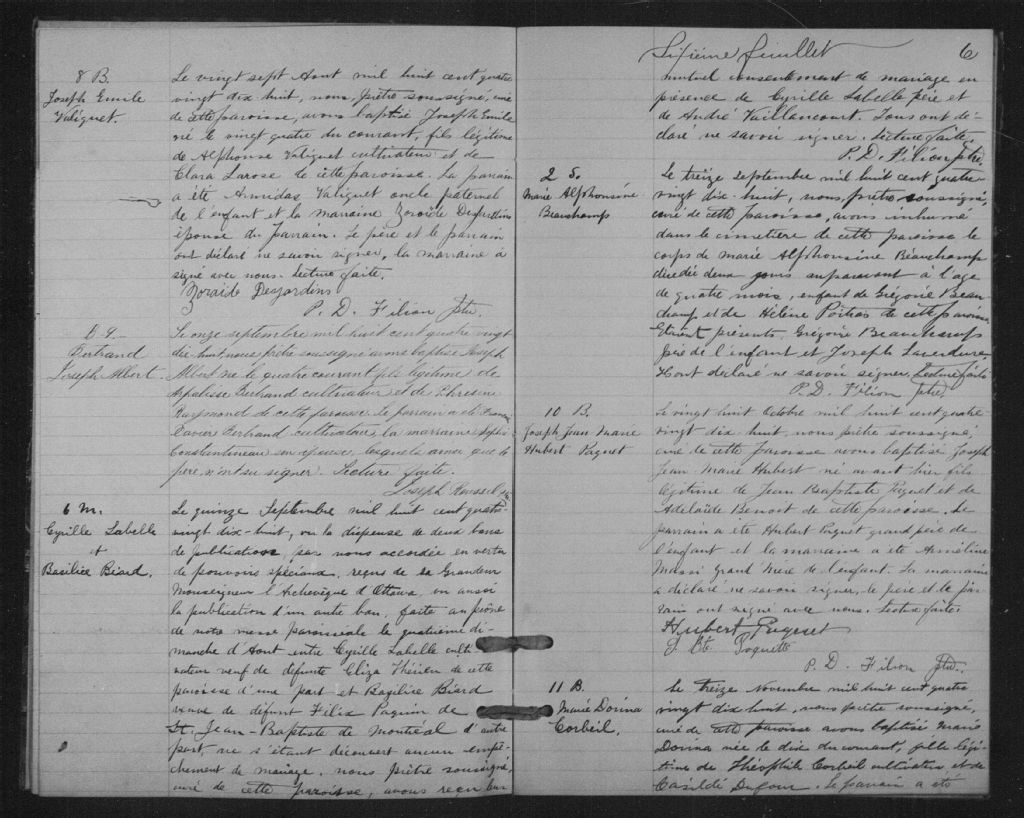 8 B.
Joseph Emile
Valiquet.
Le vingt sept Aout mil huit cent quatre
vingt dix huit, nous, prêtre soussigné, curé
de cette paroisse, avons baptisé Joseph Emile
né le vingt quatre du courant, fils légitime
de Alphonse Valiquet cultivateur et de
Clara Larose de cette paroisse. Le parrain
a été Armidas Valiquet oncle paternel
de l'enfant et la marraine Zoraïde Desjardins
épouse du parrain. Le père et le parrain
ont déclaré ne savoir signer, la marraine a
signé avec nous. Lecture faite.
Zoraide Desjardins
P. D. Filion Ptre.
B 9
Bertrand
Joseph Albert
Le onze septembre mil huit cent quatre vingt
dix-huit, nous prêtre soussigné avons baptisé Joseph
Albert né le quatre courant fils légitime de
Bertrand cultivateur et de
Raymond de cette paroisse le parrain a été
Xavier Bertrand cultivateur, la marraine
Constantineau son épouse, lesquels ainsi que le
père, n'ont su signer. Lecture faite.
Joseph Roussel
6 M.
Cyrille Labelle
et
Basilice Biard.
Le quinze Septembre mil huit cent quatre
vingt dix-huit, vu la dispense de deux bans
de publication, par nous accordée en vertu
de pouvoirs spéciaux, reçus de Sa Grandeur
Monseigneur l'Archevêque d'Ottawa, vu aussi
la publication d'un autre ban, faite au prône
de notre messe paroissiale le quatrième di-
manche d'Aout entre Cyrille Labelle culti-
vateur veuf de défunte Eliza Thérien de cette
paroisse d'une part et Basilice Biard
veuve de défunt Félix Paquin de
St. Jean-Baptiste de Montréal d'autre
part, ne s'étant découvert aucun empê-
chement de mariage, nous prêtre soussigné,
curé de cette paroisse, avons reçu leur
Sixième feuillet 6
mutuel consentement de mariage en
présence de Cyrille Labelle père et
de André Vaillancourt. Tous ont dé-
claré ne savoir signer. Lecture faite.
P. D. Filion Ptre.
2 S.
Marie Alphonsine
Beauchamp
Le treize septembre mil huit cent quatre
vingt dix-huit, nous, prêtre soussigné,
curé de cette paroisse, avons inhumé
dans le cimetière de cette paroisse le
corps de Marie Alphonsine Beauchamp
décédée deux jours auparavant à l'age
de quatre mois, enfant de Grégoire Beau
champ et de Hélène Poitras de cette paroisse
Etaient présents Grégoire Beauchamp
père de l'enfant et Joseph
ont déclaré ne savoir signer. Lecture faite
P. D. Filion Ptre.
10 B.
Joseph Jean Marie
Hubert Paquet
Le vingt huit Octobre mil huit cent quatre
vingt dix huit, nous prêtre soussigné,
curé de cette paroisse avons baptisé Joseph
Jean Marie Hubert né avant hier fils
légitime de Jean Baptiste Paquet et de
Adelaïde Benoit de cette paroisse. Le
parrain a été Hubert Paquet grand père de
l'enfant et la marraine a été Arméline
Massi grand'mère de l'enfant. La marraine
a déclaré ne savoir signer, le père et le par-
rain ont signé avec nous. Lecture faite.
Hubert Paquet
J. Bte. Paquette
P. D. Filion Ptre.
11 B.
Marie Dorina
Corbeil.
Le treize Novembre mil huit cent quatre
vingt dix huit, nous prêtre soussigné,
curé de cette paroisse avons baptisé Marie
Dorina née le dix du courant, fille légi-
time de Théophile Corbeil cultivateur et de
Casildé Dufour. Le parrain a été